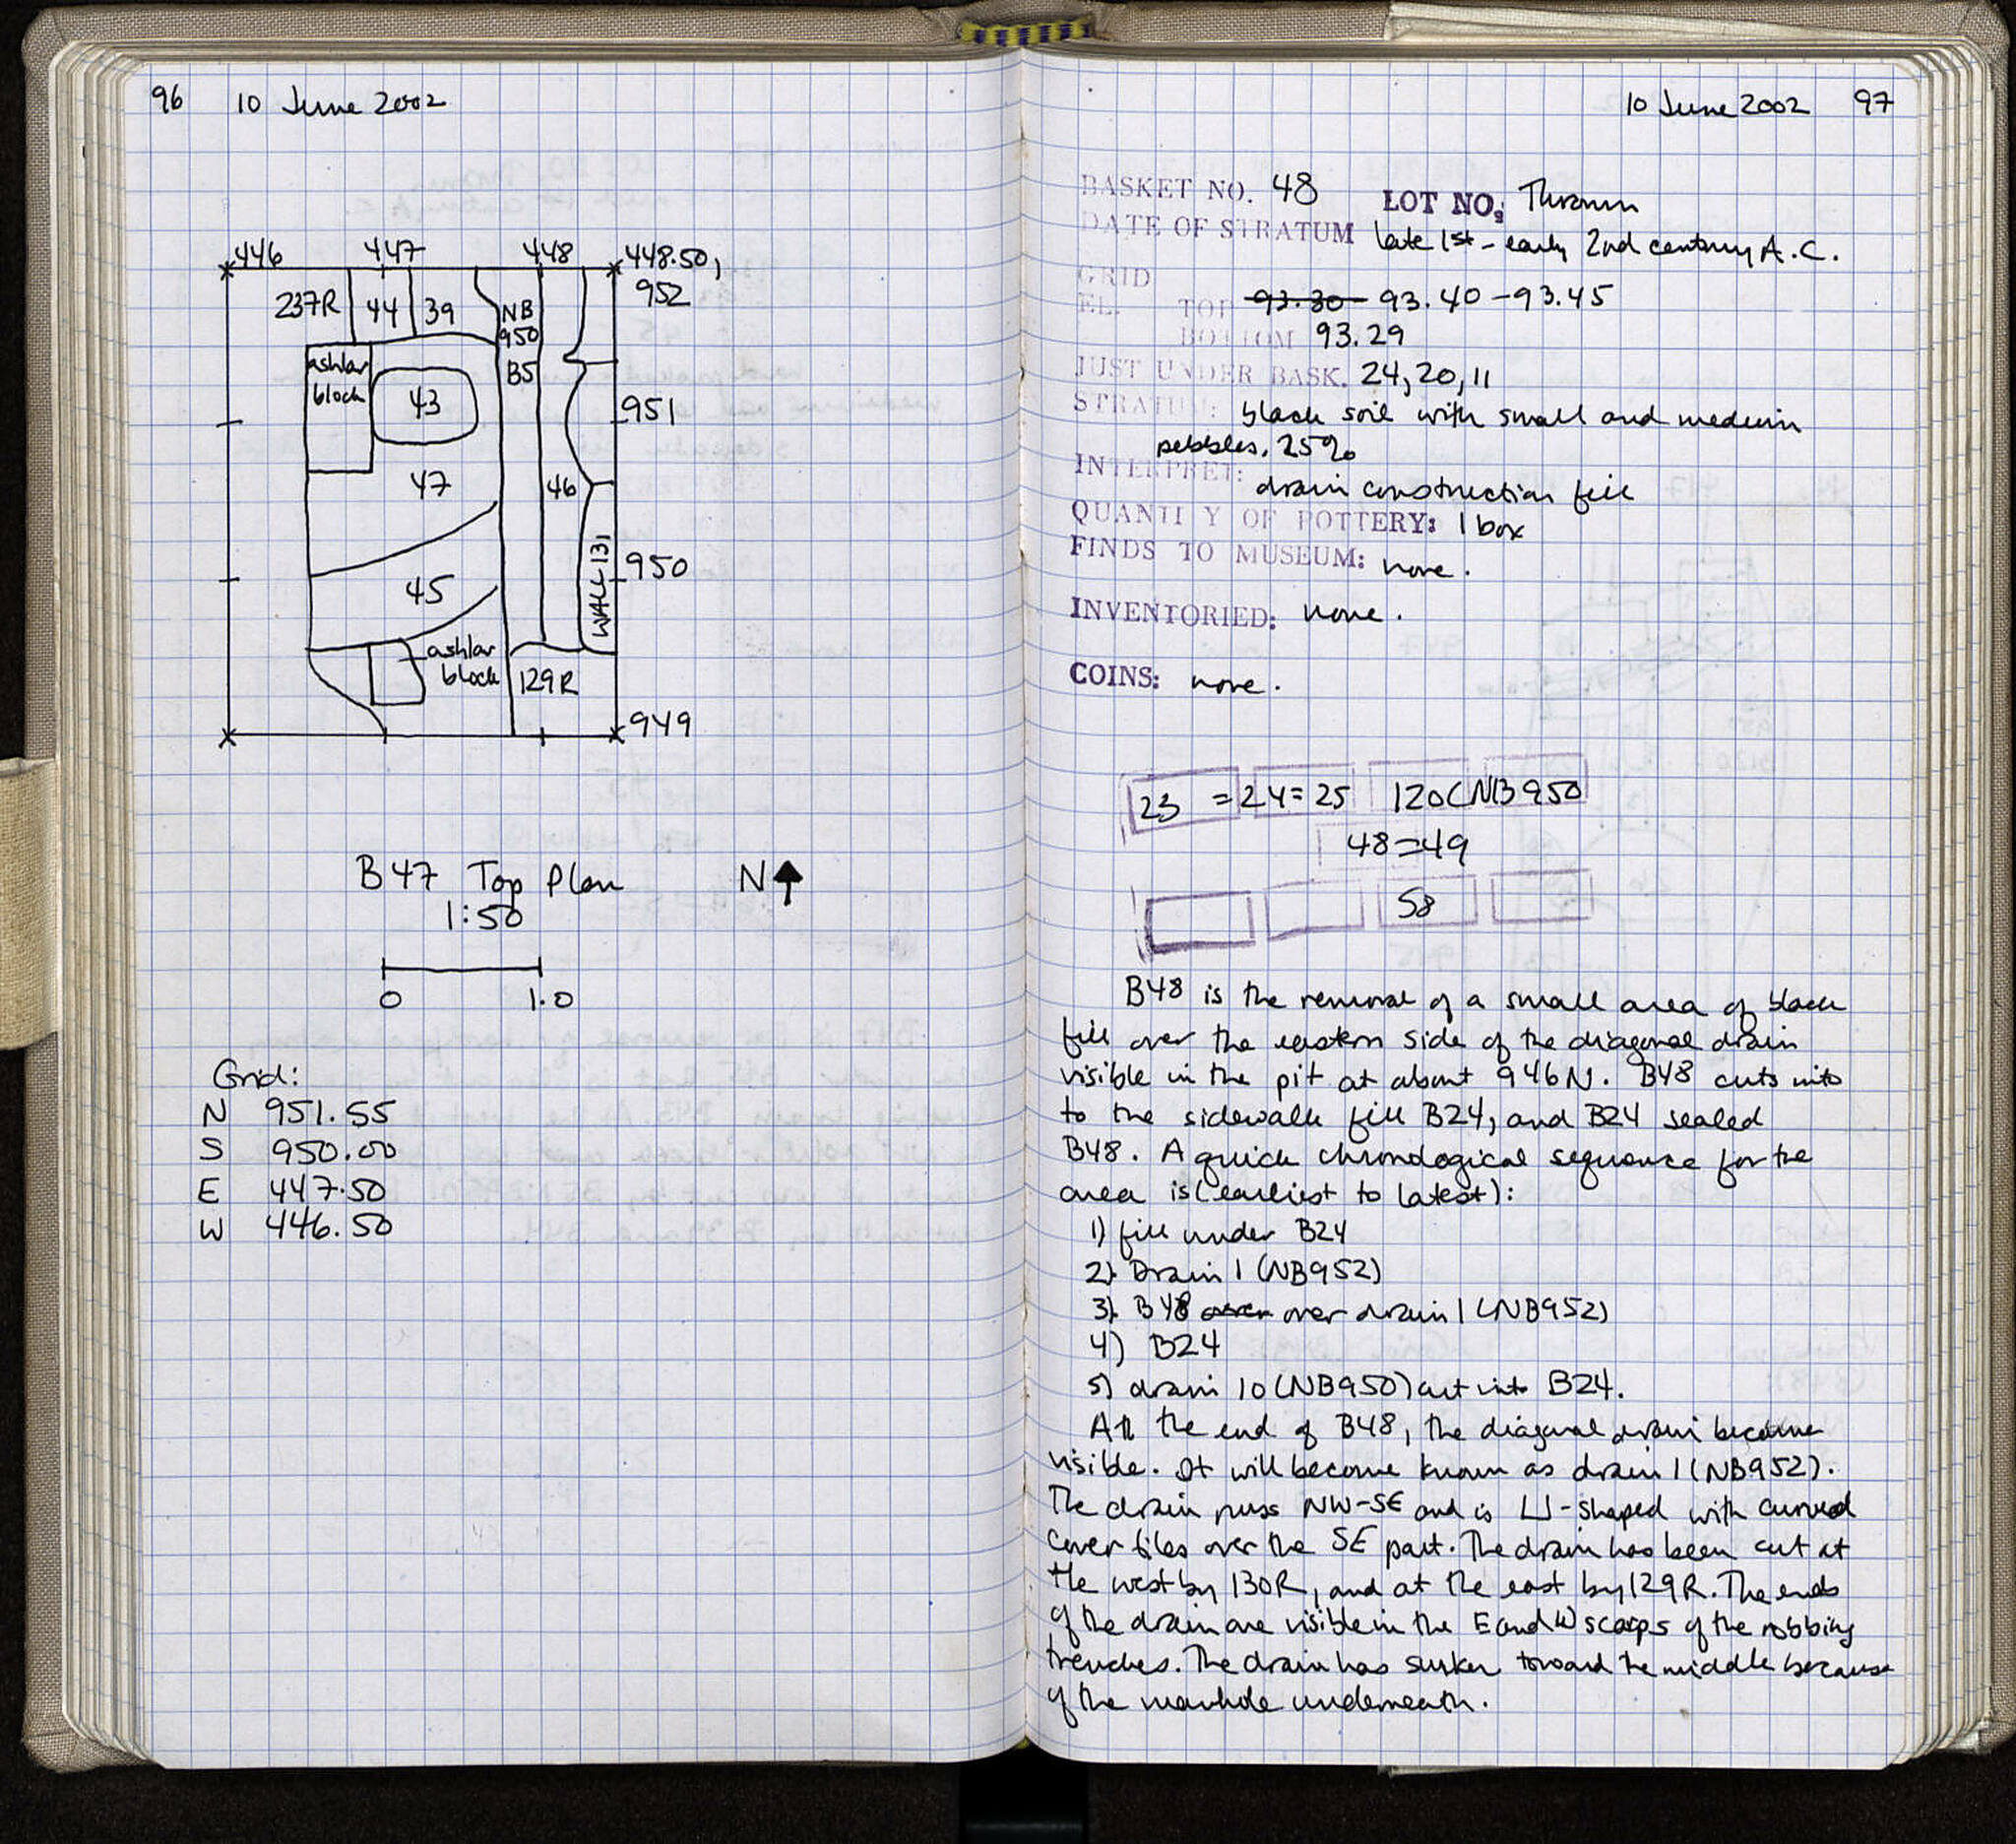 96 10 June 2002
446 447 448 448.50,
952
237R 44 39 NB
950
ashlar
block
B5
43
951
47
46
WALL 131
950
45
ashlar
block
129R
949
B47 Top Plan N
1:50
0 1.0
Grid:
N 951.55
S 950.00
E 447.50
W 446.50
10 June 2002 97
BASKET NO. 48 LOT NO. Thrown
DATE OF STRATUM late 1st - early 2nd century A.C.
GRID
EL. TOP 93.30 93.40 - 93.45
BOTTOM 93.29
JUST UNDER BASK. 24, 20, 11
STRATUM: black soil with small and medium
pebbles, 25%
INTERPRET: drain construction fill
QUANTITY OF POTTERY: 1 box
FINDS TO MUSEUM: none.
INVENTORIED: none.
COINS: none.
23 = 24 = 25 120(NB950
48=49
58
B48 is the removal of a small area of black
fill over the eastern side of the diagonal drain
visible in the pit at about 946N. B48 cuts into
to the sidewalk fill B24, and B24 sealed
B48. A quick chronological sequence for the
area is (earliest to latest):
1) fill under B24
2) Drain 1 (NB952)
3) B48 over over drain 1 (NB952)
4) B24
5) drain 10 (NB950) cut into B24.
At the end of B48, the diagonal drain became
visible. It will become known as drain 1 (NB952).
The drain runs NW-SE and is U-shaped with curved
cover tiles over the SE part. The drain has been cut at
the west by 130R, and at the east by 129R. The ends
of the drain are visible in the E and W scarps of the robbing
trenches. The drain has sunken toward the middle because
of the manhole underneath.